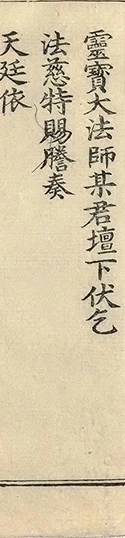 靈寶大法師某君壇下伏乞
法慈特賜謄奏
天廷依